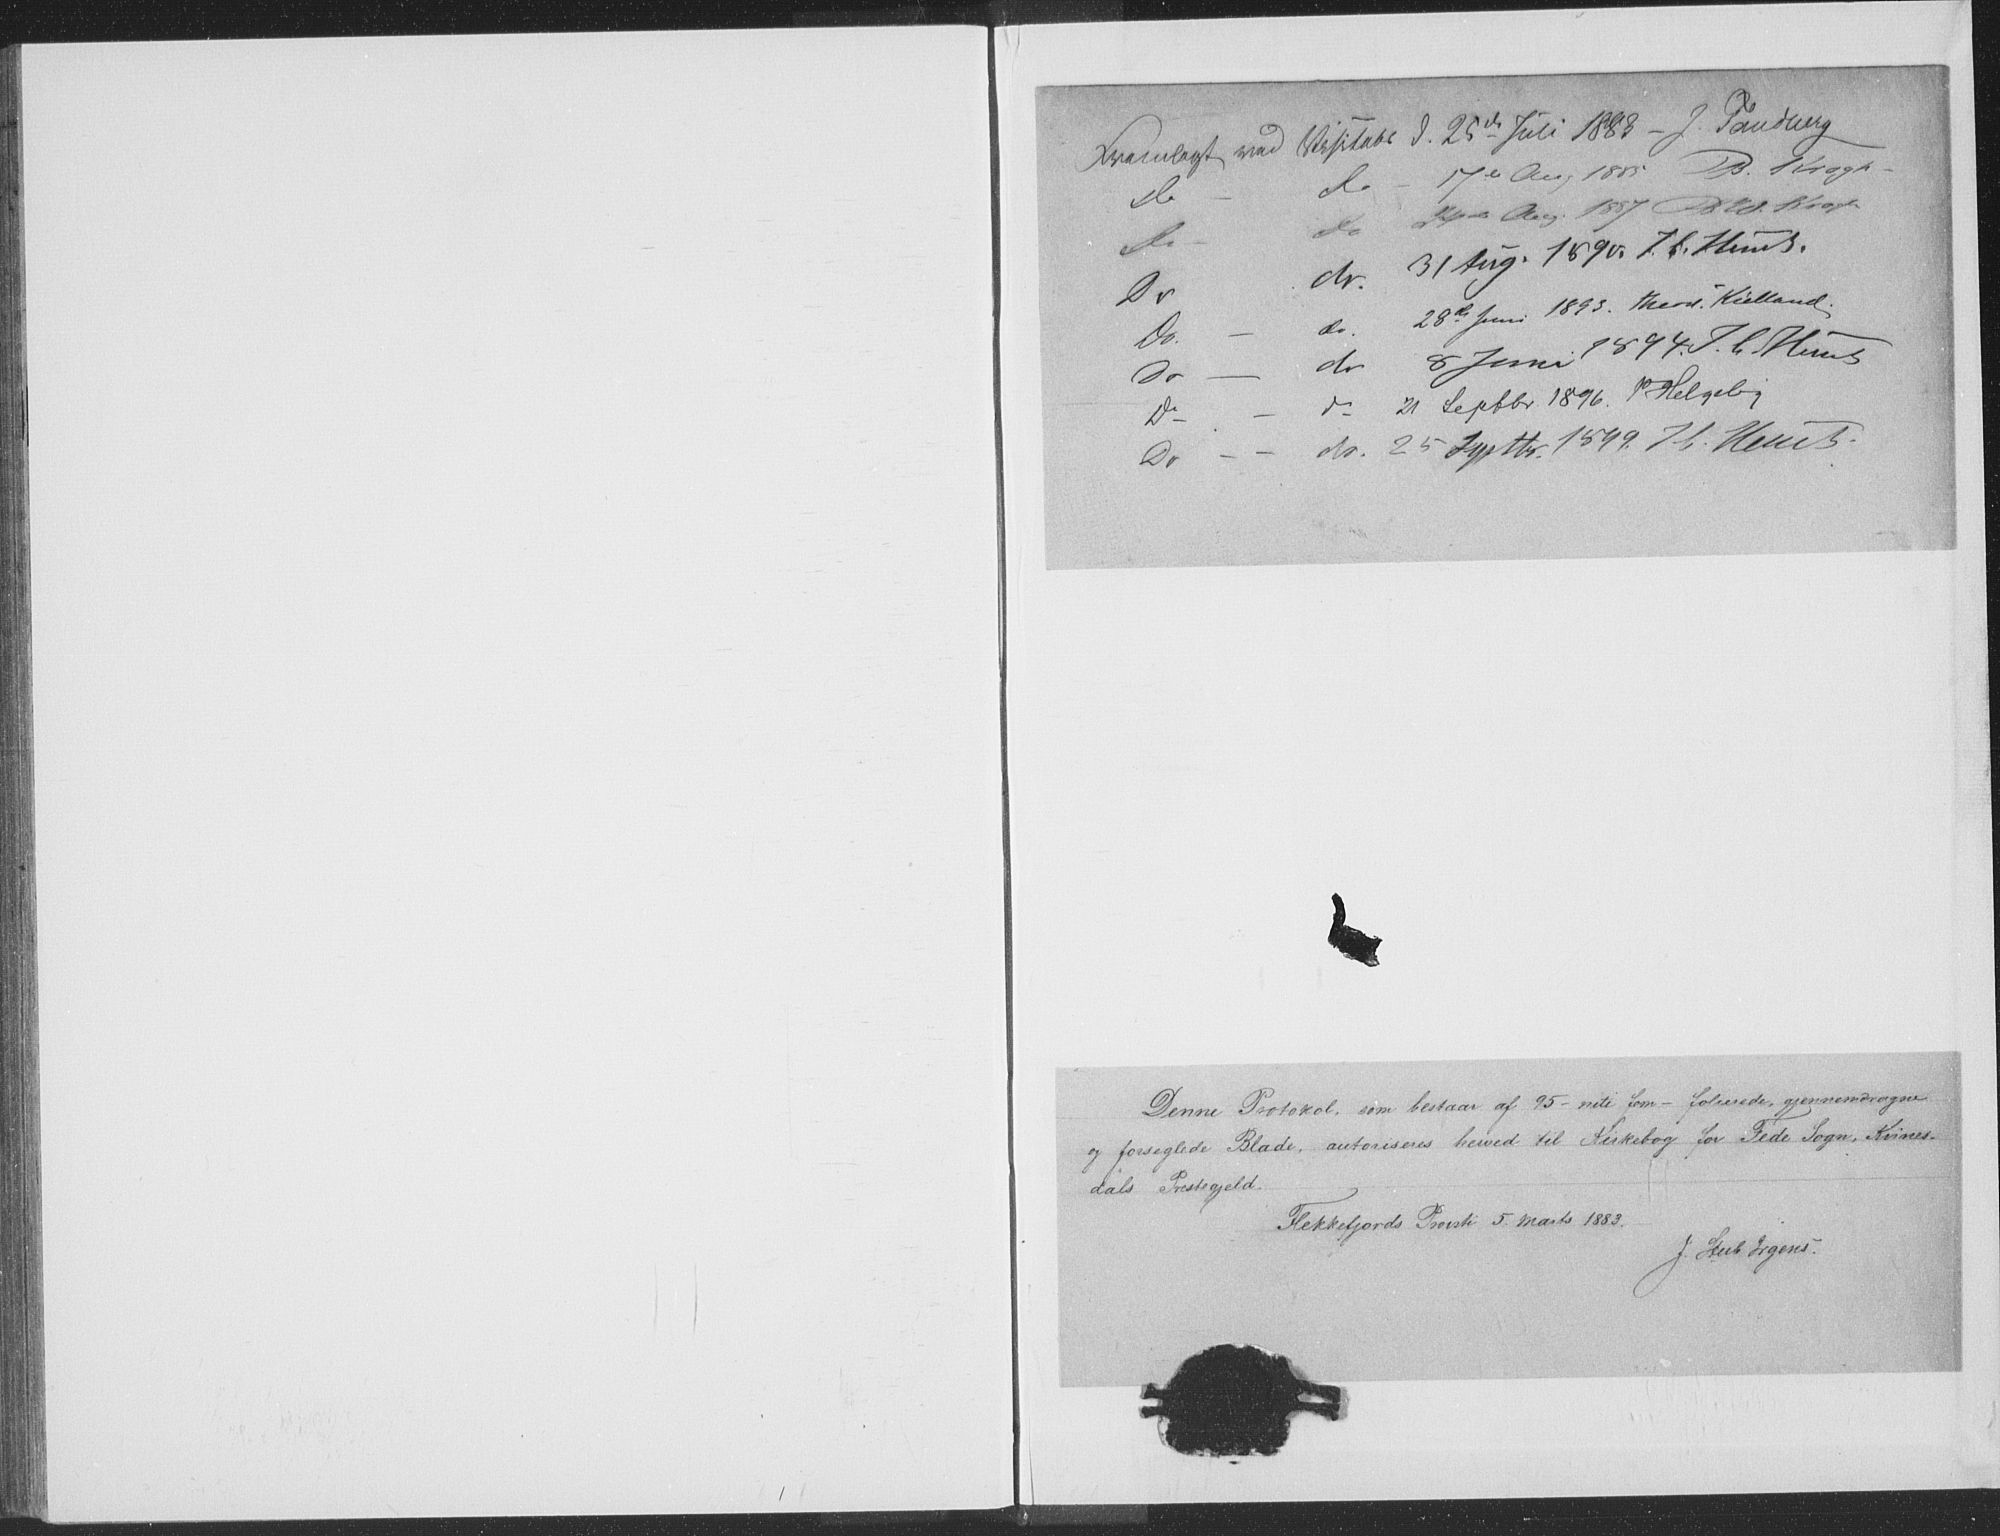 Fremlagt ved Visitats d. 25de Juli 1883 – J. Tandberg
Do – do – 17de Aug 1885 B. Krogh –
Do – do Aug. 1887 Krogh
Do do. 31 Aug. 1890. Th. Heuch.
Do. – do. 28de Juni 1893. Kielland.
Do – do 8 Juni 1894. Th. Heuch
Do – do 21 Septbr. 1896. P Helgeby
Do – – do. 25 Septbr. 1899. Th. Heuch.
Denne Protokol, som bestaar af 95 – niti fem – folierede, gjennemdragne
og forseglede Blade, autoriseres herved til Kirkebog for Fede Sogn, Kvines-
dals Prestegjeld.
Flekkefjords Provsti 5. Marts 1883.
J. Stub Irgens.